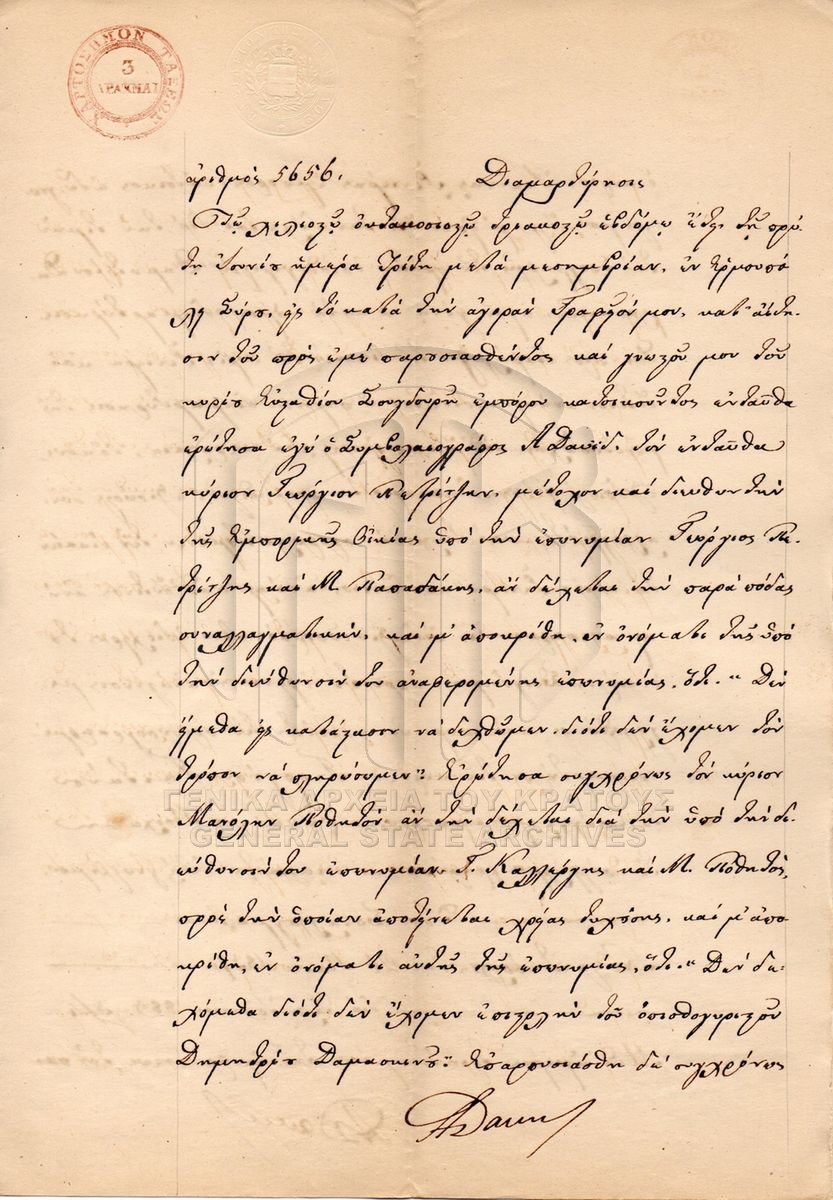 ΧΑΡΤΟΣΗΜΟΝ ΤΑΞΕΩΣ
3
ΔΡΑΧΜΑΙ
ἀριθμὸς 5656. Διαμαρτύρησις
Τῷ χιλιοστῷ ὀκτακοσιοστῷ τριακοστῷ ἑβδόμῳ ἔτει τῇ πρώ-
τῃ Ἰουνίου ἡμέρᾳ Τρίτῃ μετὰ μεσημβρίαν, ἐν Ἑρμουπό
λει Σύρου, εἰς τὸ κατὰ τὴν ἀγορὰν Γραφεῖόν μου, κατ' αἴτη-
σιν τοῦ πρὸς ἐμὲ παρουσιασθέντος καὶ γνωστοῦ μου τοῦ
κυρίου Εὐσταθίου Σουγδουρῆ ἐμπόρου κατοικοῦντος ἐνταῦθα
ἐρώτησα ἐγὼ ὁ Συμβολαιογράφος Α Δαυίδ, τὸν ἐνταῦθα
κύριον Γεώργιον Πετρίτζην, μέτοχον καὶ διευθυντὴν
τῆς Ἐμπορικῆς Οἰκίας ὑπὸ τὴν ἐπωνυμίαν Γεώργιος Πε-
τρίτζης καὶ Μ. Παπαδάκης, ἂν δέχεται τὴν παρὰ πόδας
συναλλαγματικήν, καὶ μ' ἀπεκρίθη, ἐν ὀνόματι τῆς ὑπὸ
τὴν διεύθυνσίν του ἀναφερομένης ἐπωνυμίας, ὅτι "Δὲν
εἴμεθα εἰς κατάστασιν νὰ δεχθῶμεν, διότι δὲν ἔχομεν τὸν
τρόπον νὰ πληρώσωμεν" Ἐρώτησα συγχρόνως τὸν κύριον
ΓΕΝΙΚΑ ΑΡΧΕΙΑ ΤΟΥ ΚΡΑΤΟΥΣ
Μανόλην Ποθητὸν ἂν τὴν δέχεται διὰ τὴν ὑπὸ τὴν δι-
GENERAL STATE ARCHIVES
εύθυνσίν του ἐπωνυμίαν Γ. Καλλέργης καὶ Μ. Ποθητός,
πρὸς τὴν ὁποίαν ἀποτείνεται χρείας τυχούσης, καὶ μ' ἀπε-
κρίθη, ἐν ὀνόματι αὐτῆς τῆς ἐπωνυμίας, ὅτι "Δὲν δε-
χόμεθα διότι δὲν ἔχομεν ἐπιστολὴν τοῦ ὀπισθογυριστοῦ
Δημητρίου Δαμασκηνοῦ" Ἐπαρουσιάσθη δὲ συγχρόνως